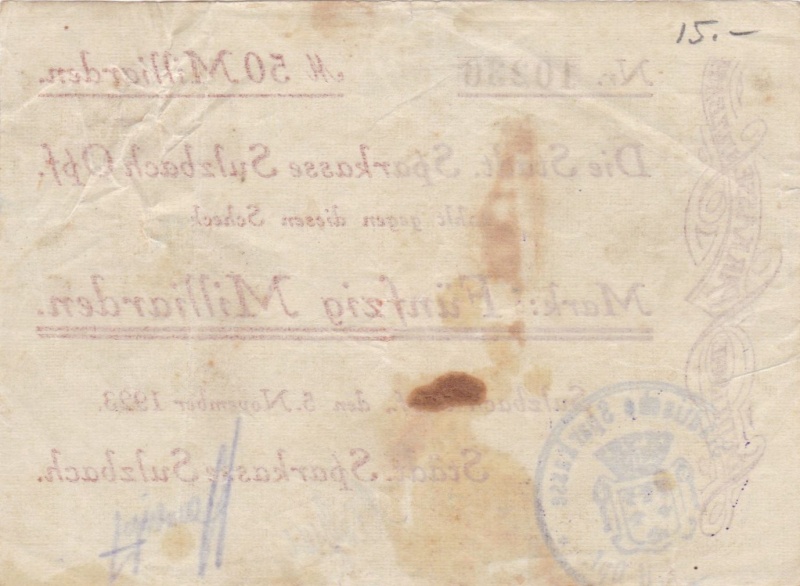 15.-
Nr. 10230
M 50 Milliarden.
Die Städt. Sparkasse Sulzbach Opf.
zahlt gegen diesen Scheck
Mark: Fünfzig Milliarden.
Sulzbach den 5. November 1923.
Städt. Sparkasse Sulzbach.
Städtische Sparkasse